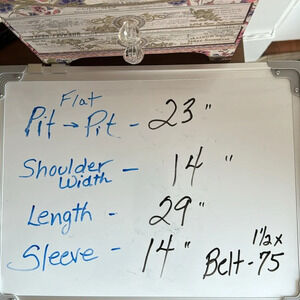 Flat
Pit → Pit - 23"
Shoulder
Width - 14"
Length - 29"
Sleeve - 14"
1½ x
Belt - 75